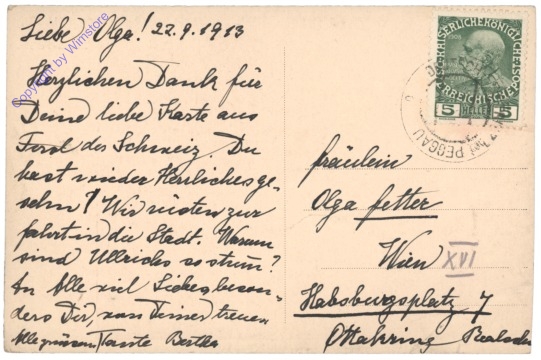 Liebe Olga! 22.9.1913
Herzlichen Dank für
Deine liebe Karte aus
Tirol des Schweiz. Du
hast wieder Herrliches ge-
sehn? Wir rüsten zur
fahrt in die Stadt. Warum
sind Ullrichs so stum?
An Alle viel Liebes, beson-
ders Dir, von Deiner treuen
Alle grüssen! Tante Bertha
Copyright by Wimstore
KAISERLICHE KÖNIGLICHE
ÖSTERREICHISCHE POST
5 HELLER 5
bei PEGGAU
fräulein
Olga fetter
Wien XVI
Habsburgsplatz 7
Ottakring